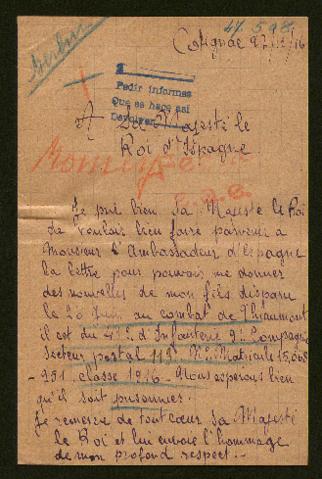 47.598
Berlin
Cotignac 27/12/16
Pedir informes
Que se hace asi
Devolver
A Sa Majesté le
Roi d'Espagne
Je prie bien Sa Majesté le Roi
de vouloir bien faire parvenir a
Monsieur l'Ambassadeur d'Espagne
la lettre pour pouvoir me donner
des nouvelles de mon fils disparu
le 20 Juin au combat de Thiaumont
il est du d'Infanterie 9e Compagnie
Secteur postal 113. No Matricule 15,008
classe 1916 - Nous esperons bien
qu'il soit prisonnier.
Je remercie de tout cœur sa Majesté
le Roi et lui envoie l'hommage
de mon profond respect.-